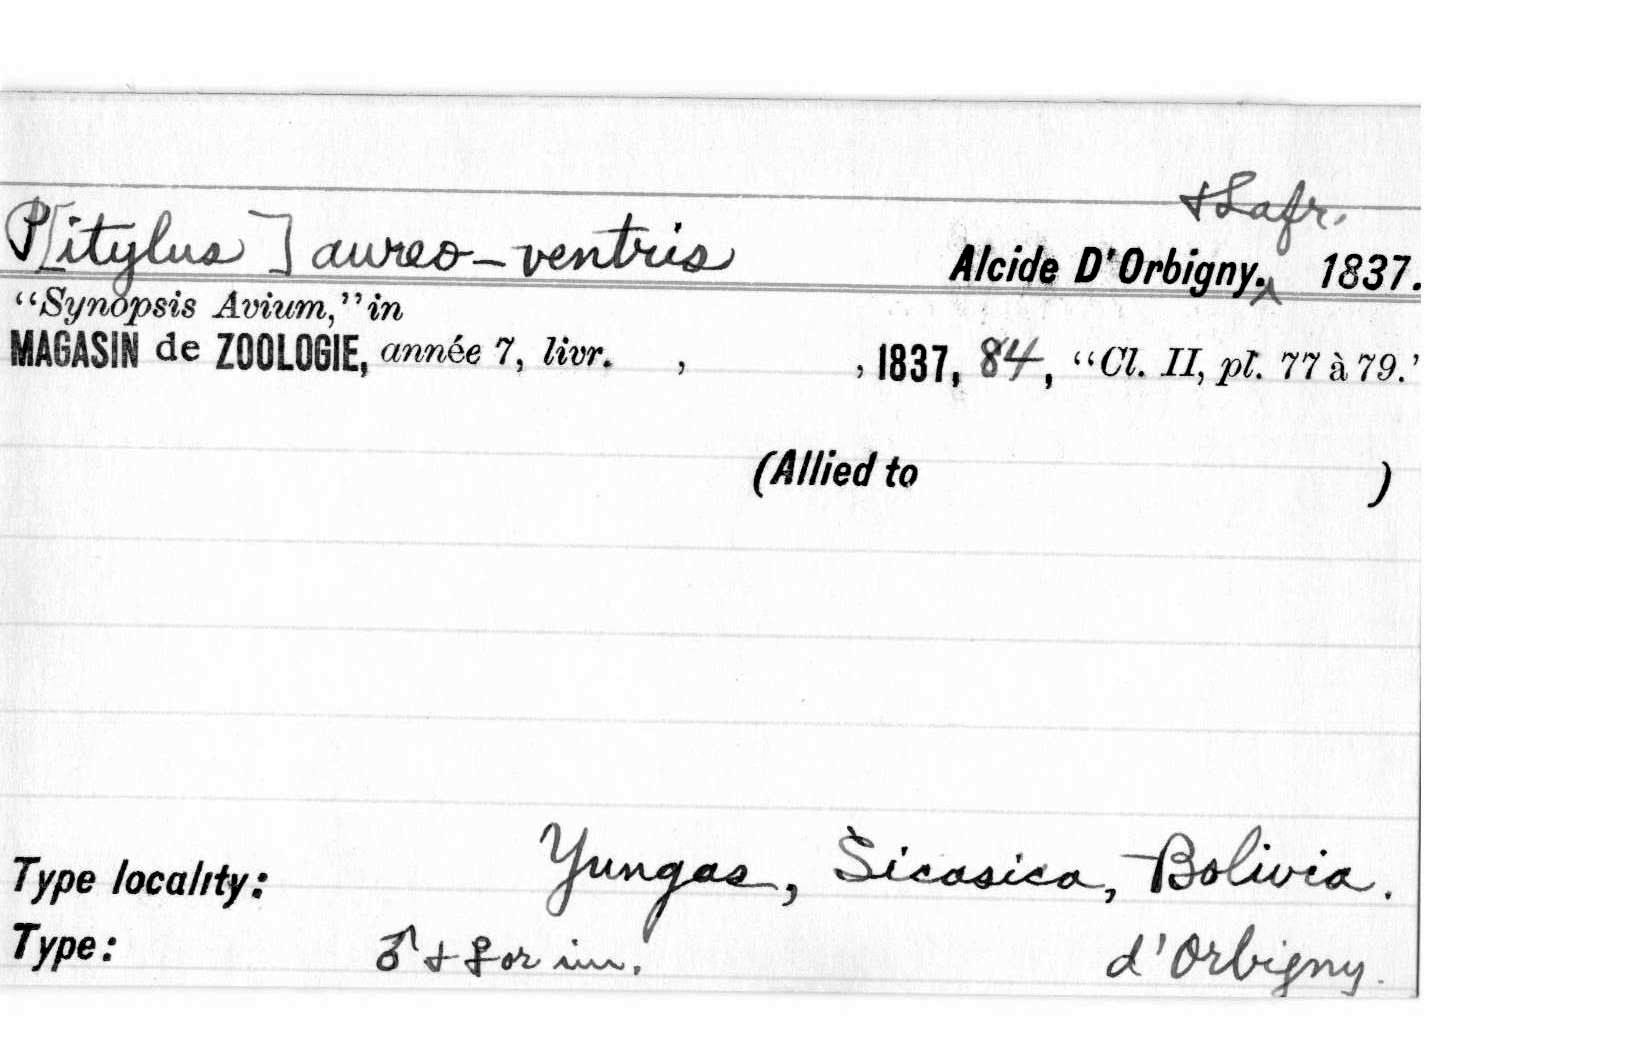 & Lafr.
P[itylus] aureo-ventris Alcide D'Orbigny.^ 1837.
“Synopsis Avium,” in
MAGASIN de ZOOLOGIE, année 7, livr. , , 1837, 84, “Cl. II, pl. 77 à 79.’
(Allied to )
Type locality: Yungas, Sicasica, Bolivia.
Type: ♂ & ♀ or im. d'Orbigny.